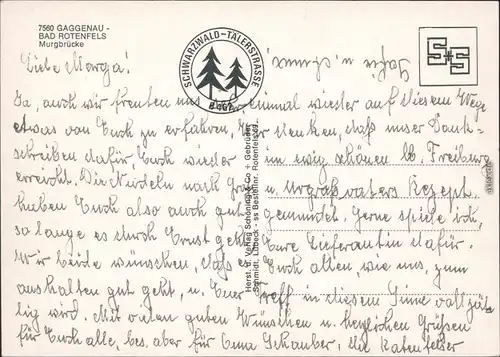 7560 GAGGENAU -
BAD ROTENFELS
Murgbrücke
SCHWARZWALD-TÄLERSTRASSE
B 462
S+S
Liebe Marga!
Ja, auch wir freuten uns einmal wieder auf diesem Wege
etwas von Euch zu erfahren, Wir denken, daß unser Dank-
schreiben dafür, Euch wieder im ewig schönen Freiburg
erreicht. Die Nudeln nach Groß u. Urgroßvaters Rezept
haben Euch also auch gut gemundet. Gerne spiele ich,
so lange es durch Ernst geht Eure Lieferantin dafür.
Wir beide wünschen, daß es Euch allen, wie uns, zum
aushalten gut geht, u. Euer Treff in diesem Sinne vollzählig
wird. Mit vielen guten Wünschen u. herzlichen Grüßen
für Euch alle, bes. aber für die Rotenfelser
Herst. u. Verlag Schöning & Co + Gebrüder
Schmidt, Lübeck - ss Bestellnr. Rotenfels